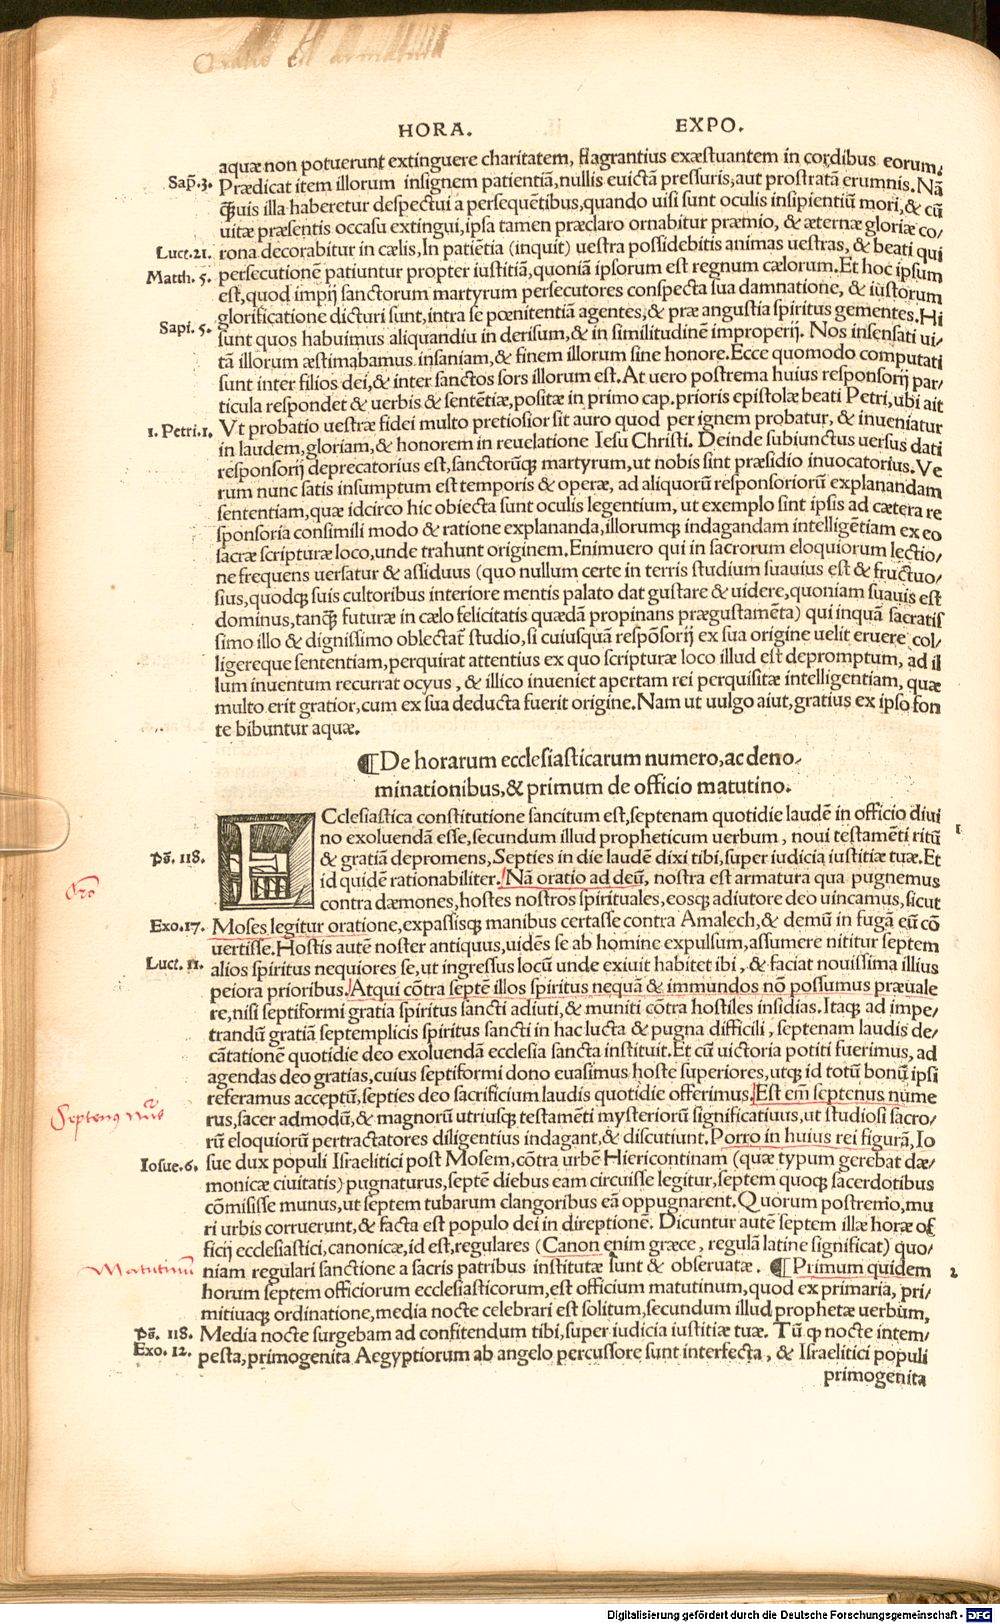 Oratio est armatura
HORA. EXPO.
aquæ non potuerunt extinguere charitatem, flagrantius exæstuantem in cordibus eorum.
Sap̃.3. Prædicat item illorum insignem patientiã, nullis euictã pressuris, aut prostratã erumnis. Nã
q̃uis illa haberetur despectui a persequẽtibus, quando uisi sunt oculis insipientiũ mori, & cũ
uitæ præsentis occasu extingui, ipsa tamen præclaro ornabitur præmio, & æternæ gloriæ co/
Luce.21. rona decorabitur in cælis, In patiẽtia (inquit) uestra possidebitis animas uestras, & beati qui
Matth. 5. persecutionẽ patiuntur propter iustitiã, quoniã ipsorum est regnum cælorum. Et hoc ipsum
est, quod impij sanctorum martyrum persecutores conspecta sua damnatione, & iustorum
glorificatione dicturi sunt, intra se pœnitentiã agentes, & præ angustia spiritus gementes. Hi
Sapi. 5. sunt quos habuimus aliquandiu in derisum, & in similitudinẽ improperij. Nos insensati ui/
tã illorum æstimabamus insaniam, & finem illorum sine honore. Ecce quomodo computati
sunt inter filios dei, & inter sanctos sors illorum est. At uero postrema huius responsorij par/
ticula respondet & uerbis & sentẽtiæ, positæ in primo cap. prioris epistolæ beati Petri, ubi ait
1. Petri.1. Vt probatio uestræ fidei multo pretiosior sit auro quod per ignem probatur, & inueniatur
in laudem, gloriam, & honorem in reuelatione Iesu Christi. Deinde subiunctus uersus dati
responsorij deprecatorius est, sanctorũq; martyrum, ut nobis sint præsidio inuocatorius. Ve
rum nunc satis insumptum est temporis & operæ, ad aliquorũ responsoriorũ explanandam
sententiam, quæ idcirco hic obiecta sunt oculis legentium, ut exemplo sint ipsis ad cætera re
sponsoria consimili modo & ratione explananda, illorumq; indagandam intelligẽtiam ex eo
sacræ scripturæ loco, unde trahunt originem. Enimuero qui in sacrorum eloquiorum lectio/
ne frequens uersatur & assiduus (quo nullum certe in terris studium suauius est & fructuo/
sius, quodq; suis cultoribus interiore mentis palato dat gustare & uidere, quoniam suauis est
dominus, tanq̃ futuræ in cælo felicitatis quædã propinans prægustamẽta) qui inquã sacratis
simo illo & dignissimo oblectat̃ studio, si cuiusquã respõsorij ex sua origine uelit eruere col/
ligereque sententiam, perquirat attentius ex quo scripturæ loco illud est depromptum, ad il
lum inuentum recurrat ocyus, & illico inueniet apertam rei perquisitæ intelligentiam, quæ
multo erit gratior, cum ex sua deducta fuerit origine. Nam ut uulgo aiut, gratius ex ipso fon
te bibuntur aquæ.
¶ De horarum ecclesiasticarum numero, ac deno/
minationibus, & primum de officio matutino.
ECclesiastica constitutione sancitum est, septenam quotidie laudẽ in officio diui 1
no exoluendã esse, secundum illud propheticum uerbum, noui testamẽti ritũ
Ps̃. 118. & gratiã depromens, Septies in die laudẽ dixi tibi, super iudicia iustitiæ tuæ. Et
id quidẽ rationabiliter. Nã oratio ad deũ, nostra est armatura qua pugnemus
contra dæmones, hostes nostros spirituales, eosq; adiutore deo uincamus, sicut
Exo.17. Moses legitur oratione, expassisq; manibus certasse contra Amalech, & demũ in fugã eũ cõ
uertisse. Hostis autẽ noster antiquus, uidẽs se ab homine expulsum, assumere nititur septem
Luce. 11. alios spiritus nequiores se, ut ingressus locũ unde exiuit habitet ibi, & faciat nouissima illius
peiora prioribus. Atqui cõtra septẽ illos spiritus nequã & immundos nõ possumus præuale
re, nisi septiformi gratia spiritus sancti adiuti, & muniti cõtra hostiles insidias. Itaq; ad impe/
trandũ gratiã septemplicis spiritus sancti in hac lucta & pugna difficili, septenam laudis de/
cãtationẽ quotidie deo exoluendã ecclesia sancta instituit. Et cũ uictoria potiti fuerimus, ad
agendas deo gratias, cuius septiformi dono euasimus hoste superiores, utq; id totũ bonũ ipsi
referamus acceptũ, septies deo sacrificium laudis quotidie offerimus. Est em̃ septenus nume
Septenus rus, sacer admodũ, & magnorũ utriusq; testamẽti mysteriorũ significatiuus, ut studiosi sacro/
rũ eloquiorũ pertractatores diligentius indagant, & discutiunt. Porro in huius rei figurã, Io
Iosue.6. sue dux populi Israelitici post Mosem, cõtra urbẽ Hiericontinam (quæ typum gerebat dæ/
monicæ ciuitatis) pugnaturus, septẽ diebus eam circuisse legitur, septem quoq; sacerdotibus
cõmisisse munus, ut septem tubarum clangoribus eã oppugnarent. Quorum postremo, mu
ri urbis corruerunt, & facta est populo dei in direptionẽ. Dicuntur autẽ septem illæ horæ of
ficij ecclesiastici, canonicæ, id est, regulares (Canon enim græce, regulã latine significat) quo/
Matutinum niam regulari sanctione a sacris patribus institutæ sunt & obseruatæ. ¶ Primum quidem 2
horum septem officiorum ecclesiasticorum, est officium matutinum, quod ex primaria, pri/
mitiuaq; ordinatione, media nocte celebrari est solitum, secundum illud prophetæ uerbum,
Ps̃. 118. Media nocte surgebam ad confitendum tibi, super iudicia iustitiæ tuæ. Tũ q nocte intem/
Exo. 12. pesta, primogenita Aegyptiorum ab angelo percussore sunt interfecta, & Israelitici populi
primogenita
Digitalisierung gefördert durch die Deutsche Forschungsgemeinschaft - DFG